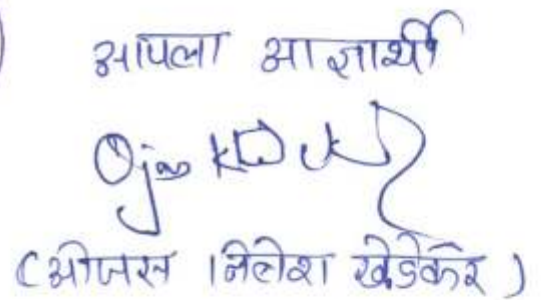 आपला आज्ञार्थी
Ojas
(ओजस निलेश खेडेकर)